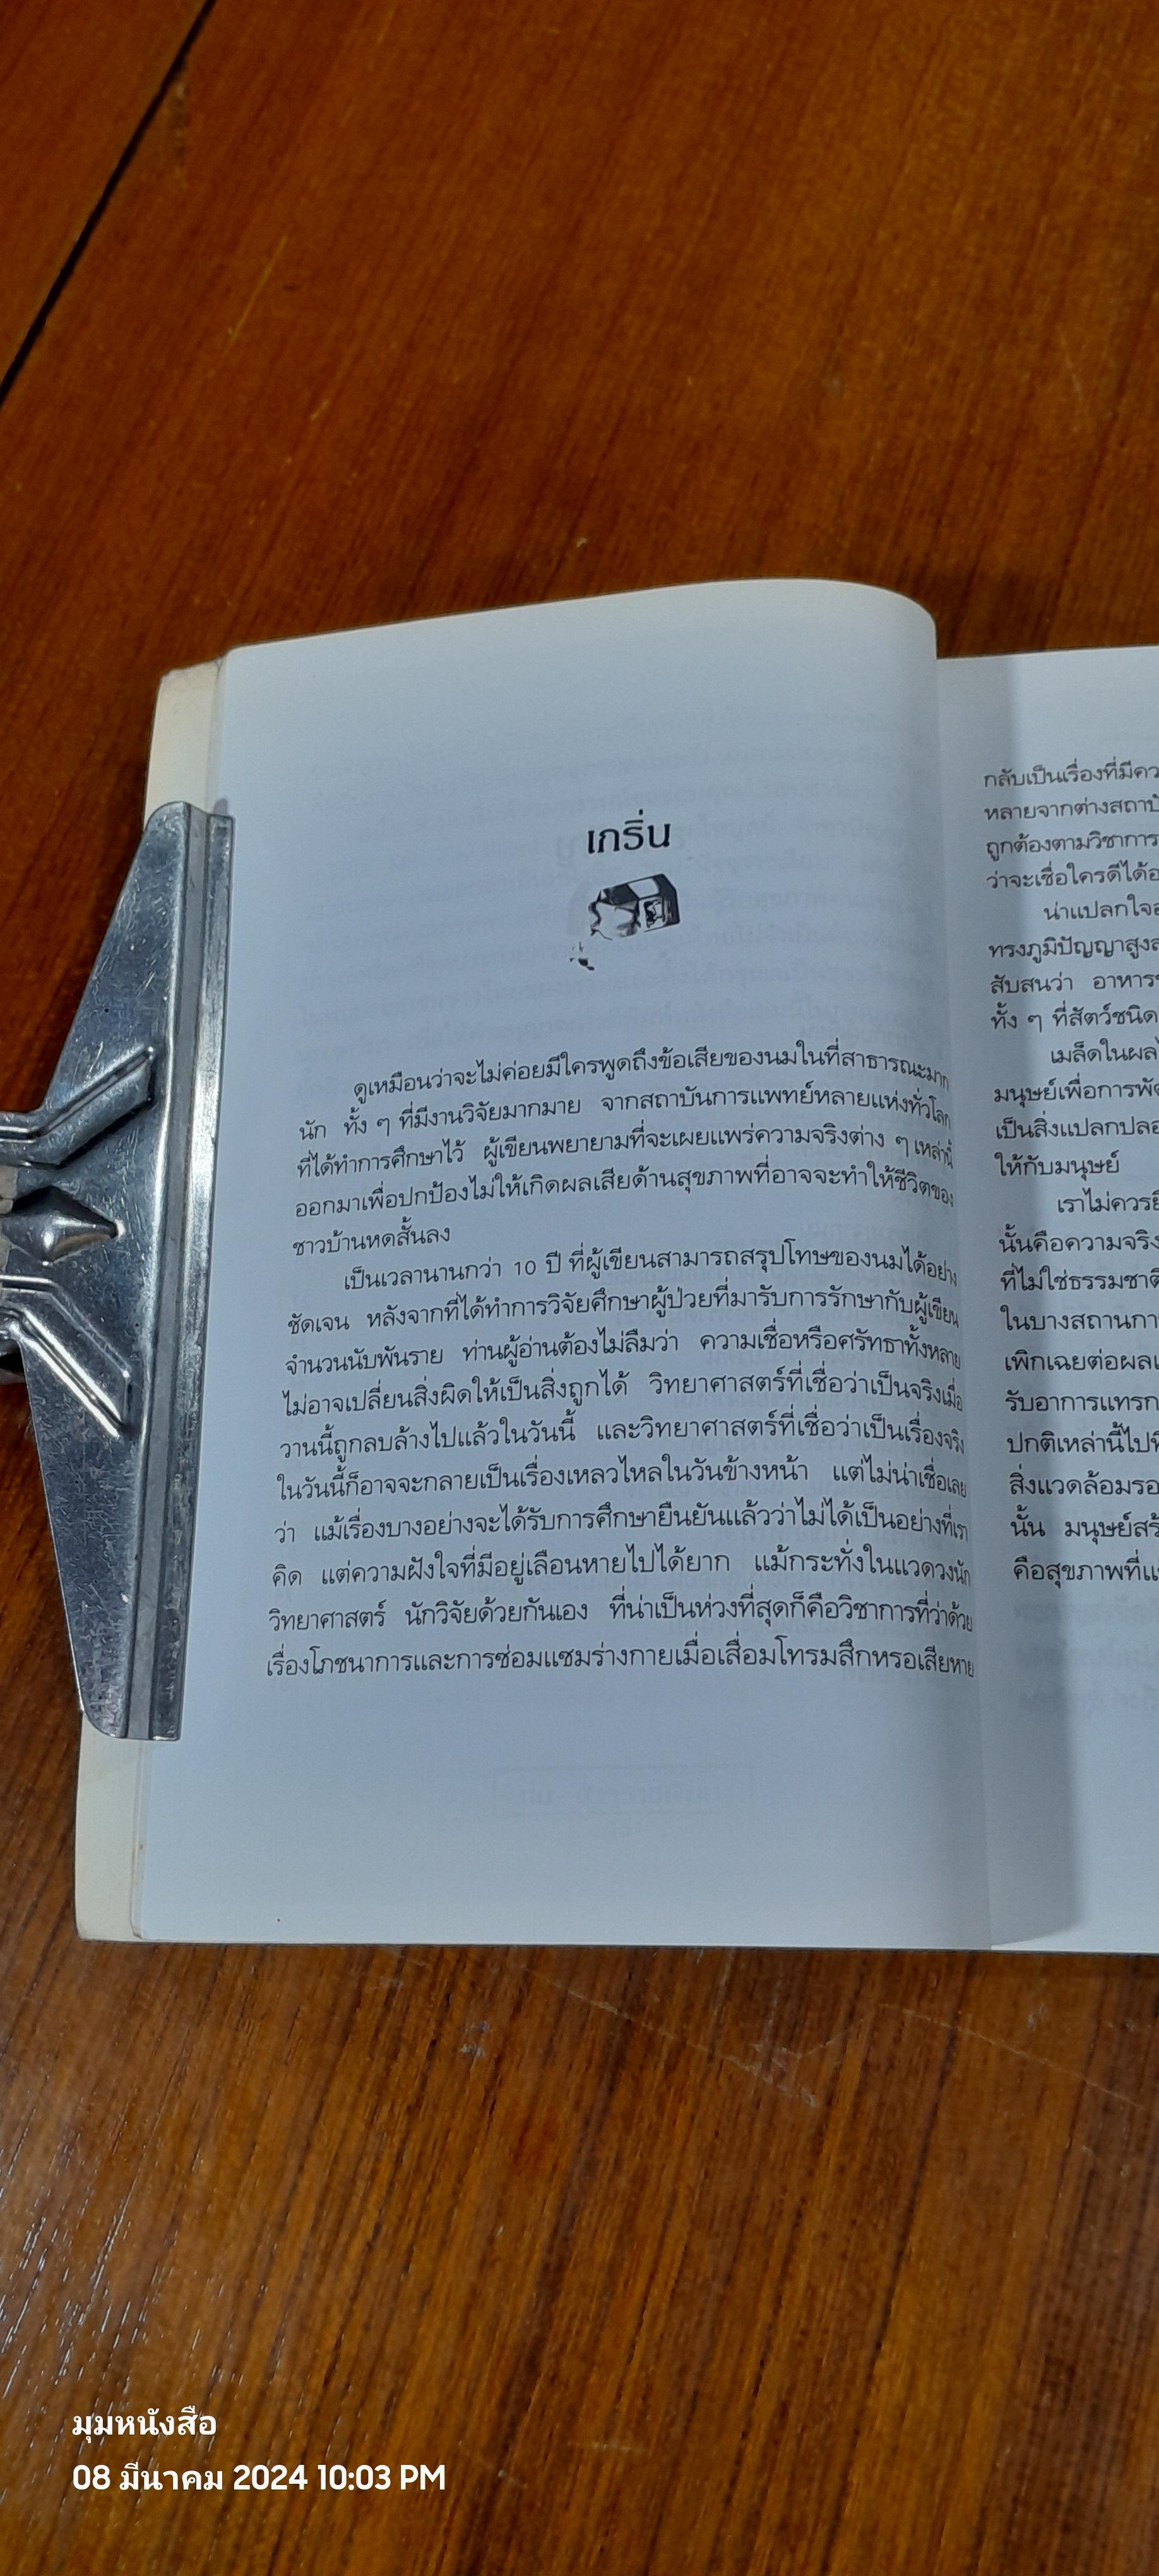 เกริ่น
ดูเหมือนว่าจะไม่ค่อยมีใครพูดถึงข้อเสียของนมในที่สาธารณะมาก
นัก ทั้ง ๆ ที่มีงานวิจัยมากมาย จากสถาบันการแพทย์หลายแห่งทั่วโลก
ที่ได้ทำการศึกษาไว้ ผู้เขียนพยายามที่จะเผยแพร่ความจริงต่าง ๆ เหล่านี้
ออกมาเพื่อปกป้องไม่ให้เกิดผลเสียด้านสุขภาพที่อาจจะทำให้ชีวิตของ
ชาวบ้านหดสั้นลง
เป็นเวลานานกว่า 10 ปี ที่ผู้เขียนสามารถสรุปโทษของนมได้อย่าง
ชัดเจน หลังจากที่ได้ทำการวิจัยศึกษาผู้ป่วยที่มารับการรักษากับผู้เขียน
จำนวนนับพันราย ท่านผู้อ่านต้องไม่ลืมว่า ความเชื่อหรือศรัทธาทั้งหลาย
ไม่อาจเปลี่ยนสิ่งผิดให้เป็นสิ่งถูกได้ วิทยาศาสตร์ที่เชื่อว่าเป็นจริงเมื่อ
วานนี้ถูกลบล้างไปแล้วในวันนี้ และวิทยาศาสตร์ที่เชื่อว่าเป็นเรื่องจริง
ในวันนี้ก็อาจจะกลายเป็นเรื่องเหลวไหลในวันข้างหน้า แต่ไม่น่าเชื่อเลย
ว่า แม้เรื่องบางอย่างจะได้รับการศึกษายืนยันแล้วว่าไม่ได้เป็นอย่างที่เรา
คิด แต่ความฝังใจที่มีอยู่เลือนหายไปได้ยาก แม้กระทั่งในแวดวงนัก
วิทยาศาสตร์ นักวิจัยด้วยกันเอง ที่น่าเป็นห่วงที่สุดก็คือวิชาการที่ว่าด้วย
เรื่องโภชนาการและการซ่อมแซมร่างกายเมื่อเสื่อมโทรมสึกหรอเสียหาย
กลับเป็นเรื่องที่มีคว
หลายจากต่างสถาบั
ถูกต้องตามวิชาการ
ว่าจะเชื่อใครดีได้อ
น่าแปลกใจอ
ทรงภูมิปัญญาสูงส
สับสนว่า อาหาร
ทั้ง ๆ ที่สัตว์ชนิด
เมล็ดในผลไ
มนุษย์เพื่อการพัฒ
เป็นสิ่งแปลกปลอ
ให้กับมนุษย์
เราไม่ควรยึ
นั้นคือความจริง
ที่ไม่ใช่ธรรมชาติ
ในบางสถานกา
เพิกเฉยต่อผลเ
รับอาการแทรก
ปกติเหล่านี้ไปที่
สิ่งแวดล้อมรอ
นั้น มนุษย์สร้
คือสุขภาพที่แ
มุมหนังสือ
08 มีนาคม 2024 10:03 PM